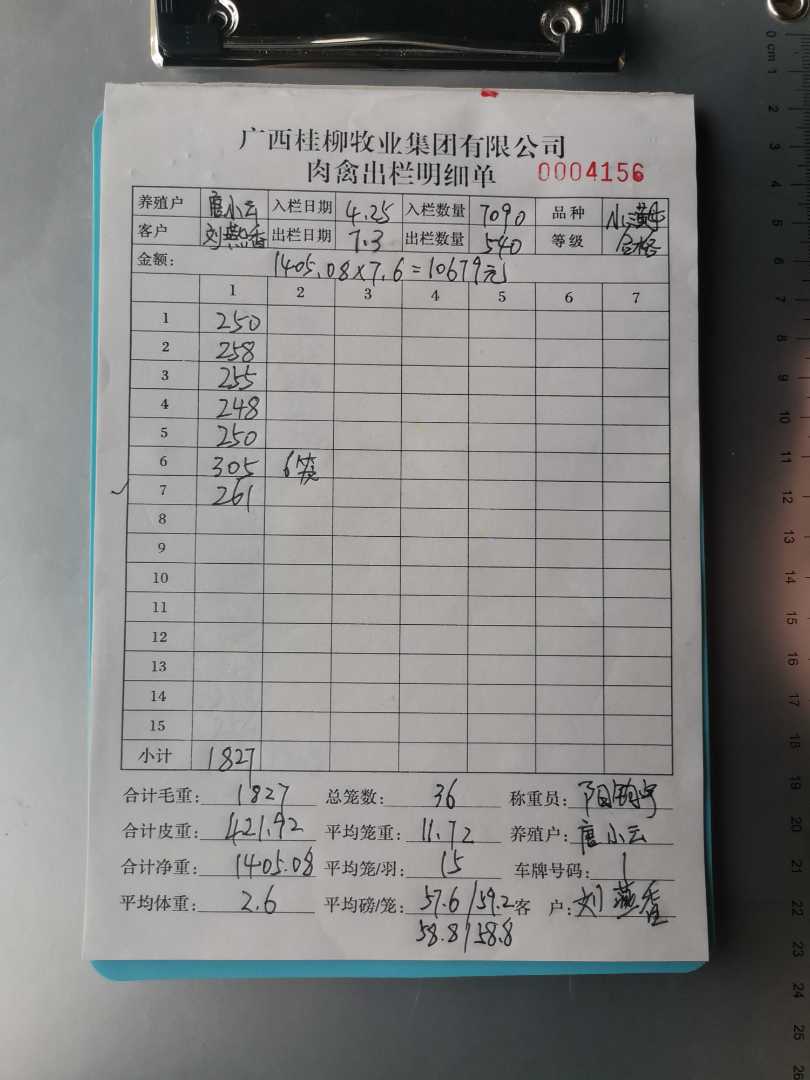 广西桂柳牧业集团有限公司
肉禽出栏明细单 0004156
养殖户 唐小云 入栏日期 4.25 入栏数量 7090 品种 小
客户 刘燕香 出栏日期 7.3 出栏数量 540 等级 合格
金额: 1405.08×7.6=10679元
1 2 3 4 5 6 7
1 250
2 258
3 255
4 248
5 250
6 305 6笼
7 261
8
9
10
11
12
13
14
15
小计 1827
合计毛重: 1827 总笼数: 36 称重员: 阳
合计皮重: 421.92 平均笼重: 11.72 养殖户: 唐小云
合计净重: 1405.08 平均笼/羽: 15 车牌号码: 1
平均体重: 2.6 平均磅/笼: 57.6/59.2 客 户: 刘燕香
58.8/58.8
0 cm 1 2 3 4 5 6 7 8 9 10 11 12 13 14 15 16 17 18 19 20 21 22 23 24 25 26